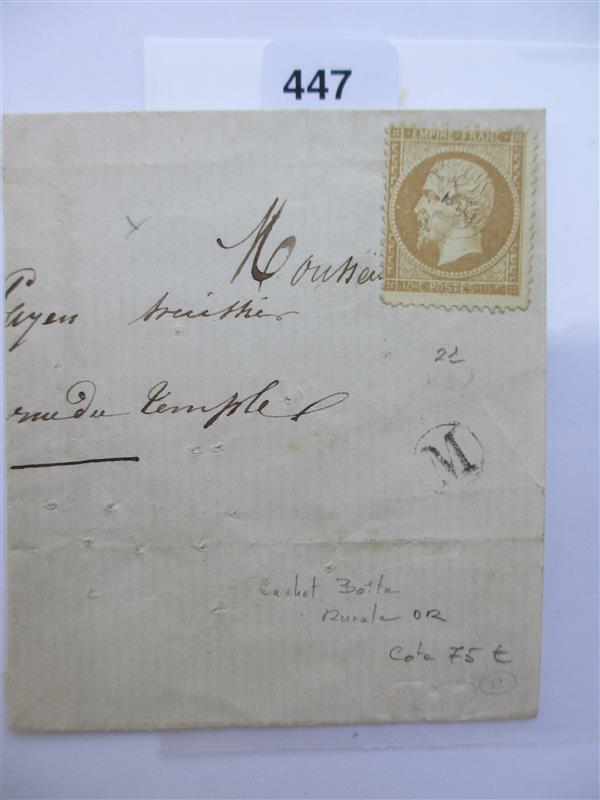 447
EMPIRE FRANC
10 C POSTES 10 C
Monsieur
Payen
rue du Temple
21
M
Cachet Boîte
Rurale OR
Cote 75 €